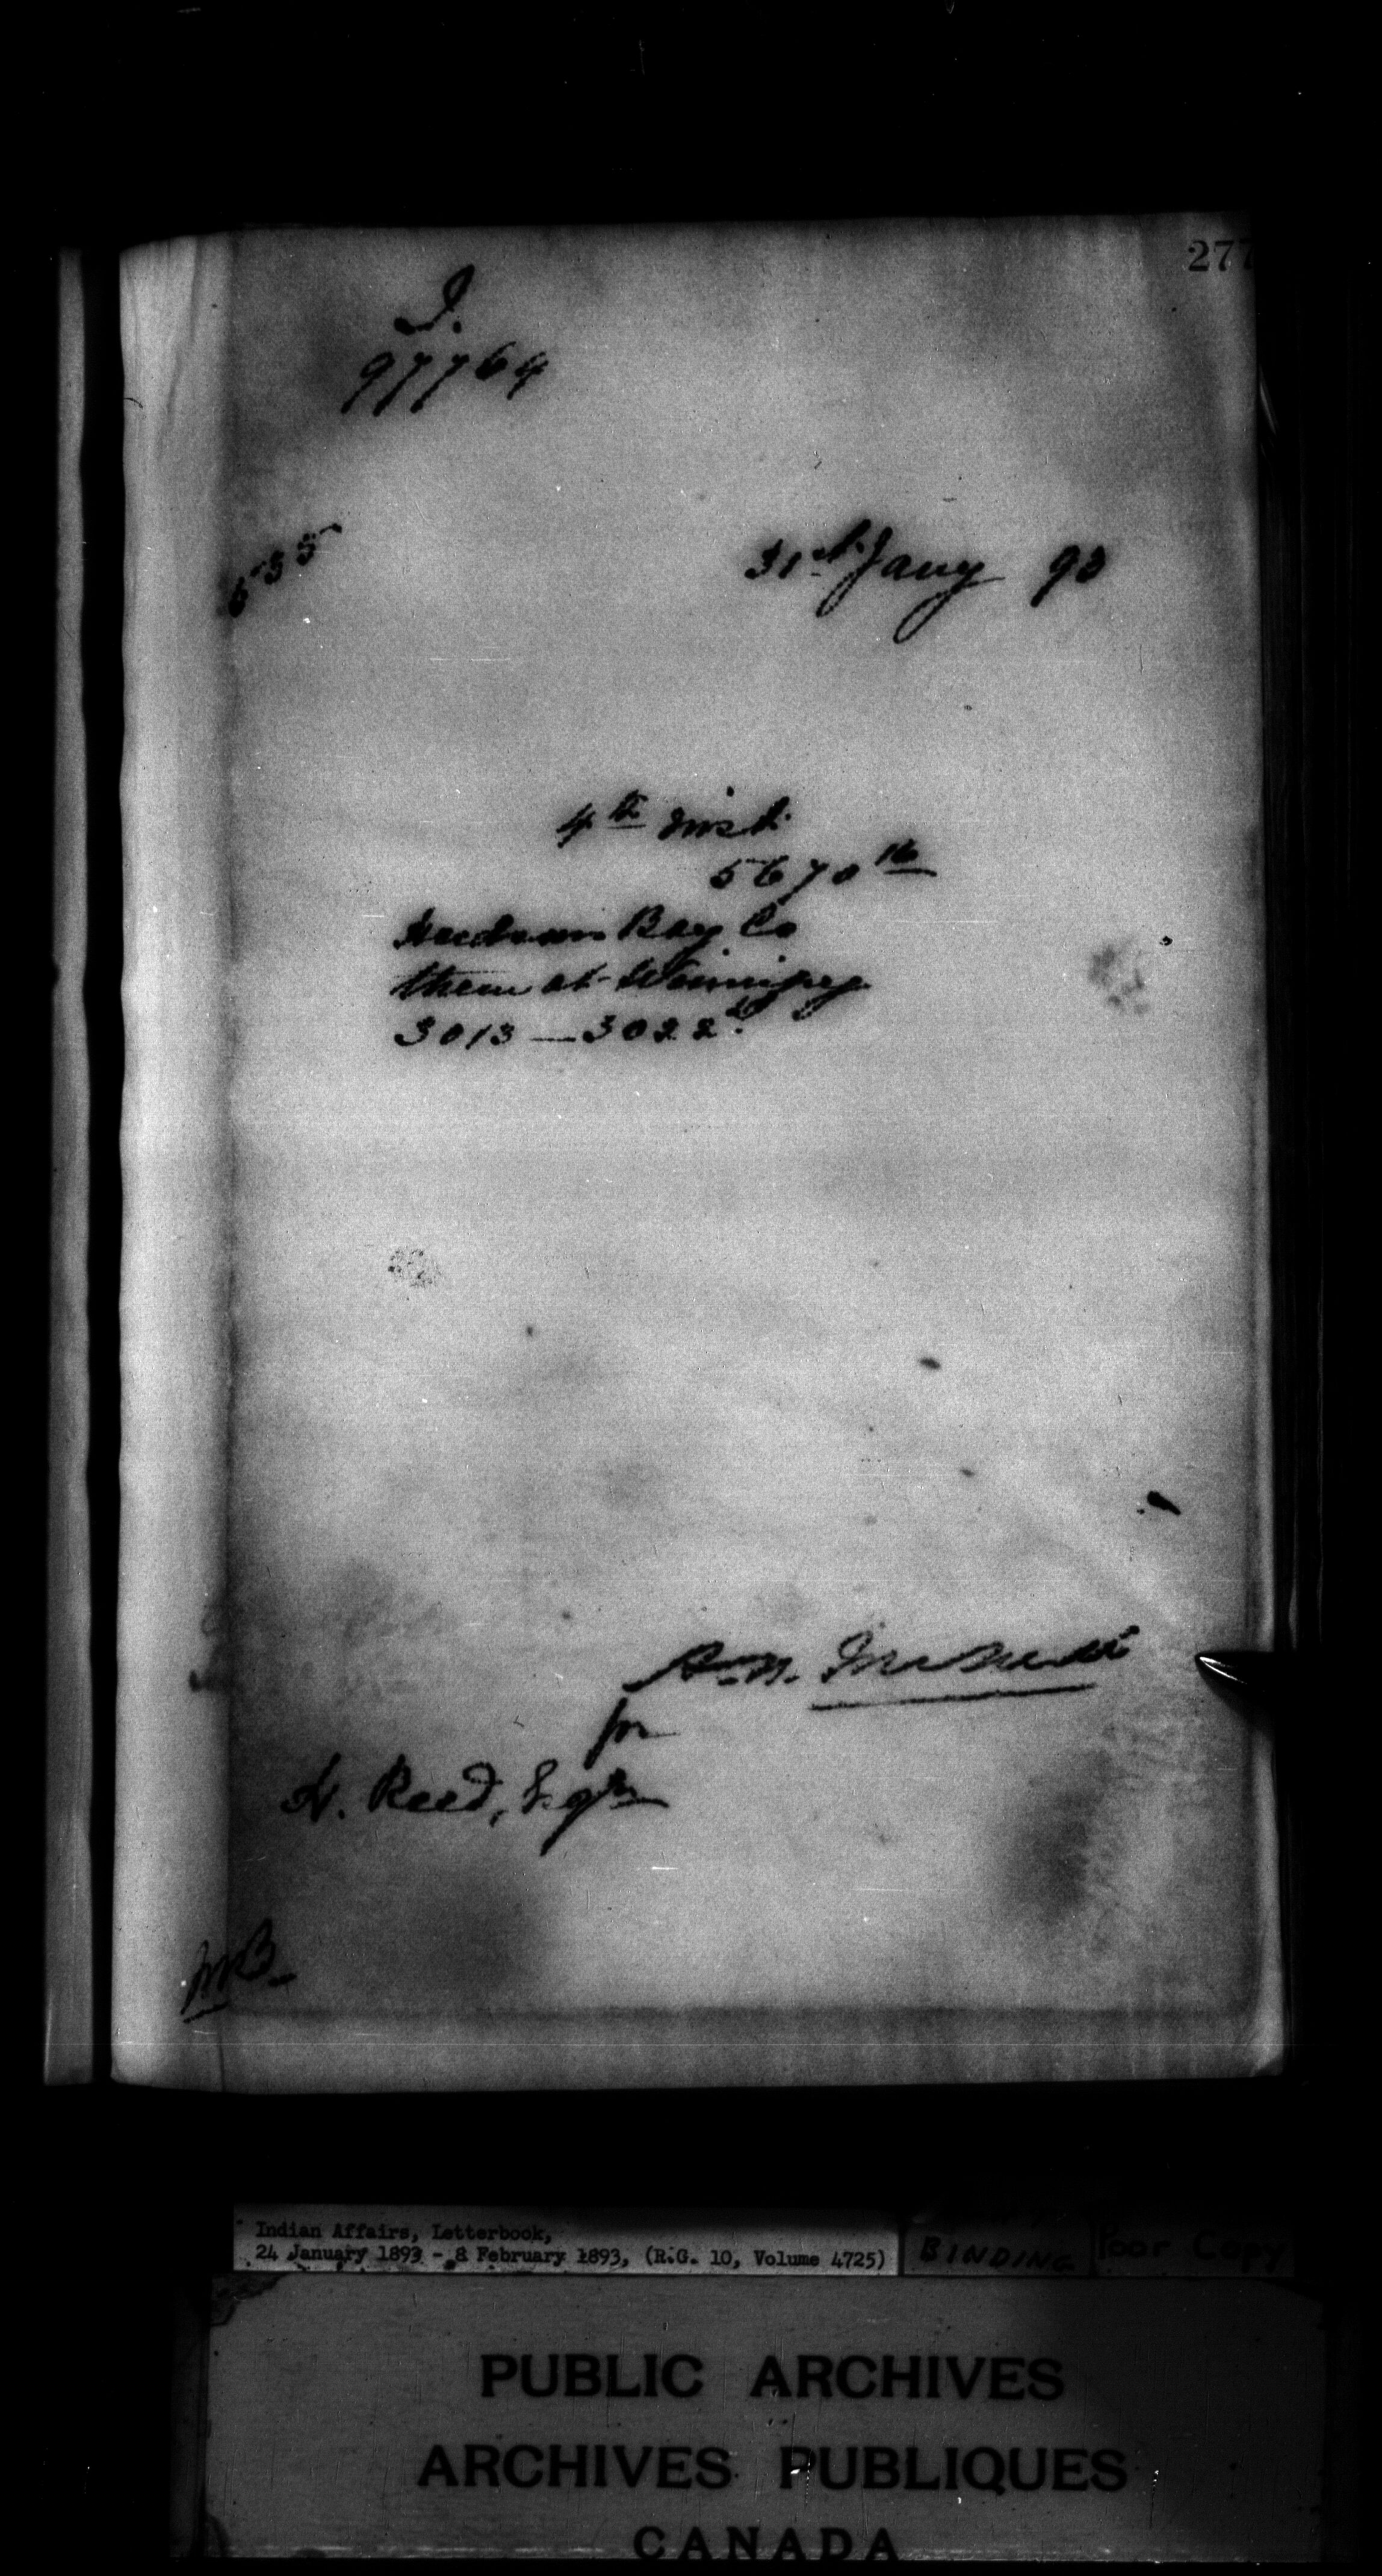 277
I.
97764
31st Jany 93
4th inst.
5670
Hudson Bay Co
them at Winnipeg
3013 — 3022
for
H. Reed, Esqre
Indian Affairs, Letterbook,
24 January 1893 - 8 February 1893, (R.G. 10, Volume 4725)
BINDING
Poor Copy
PUBLIC ARCHIVES
ARCHIVES PUBLIQUES
CANADA